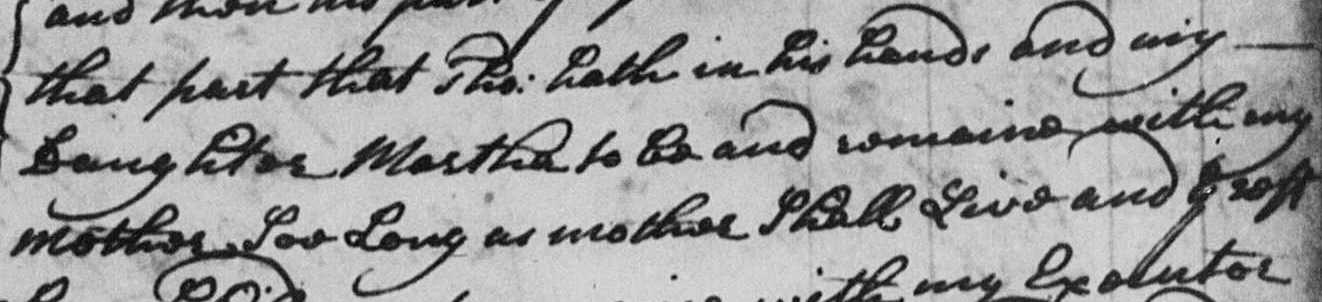 and then his part of
that part that Tho: hath in his hands and my
Daughter Martha to be and remaine with my
mother Soo Long as mother Shall Live and
with my Executor